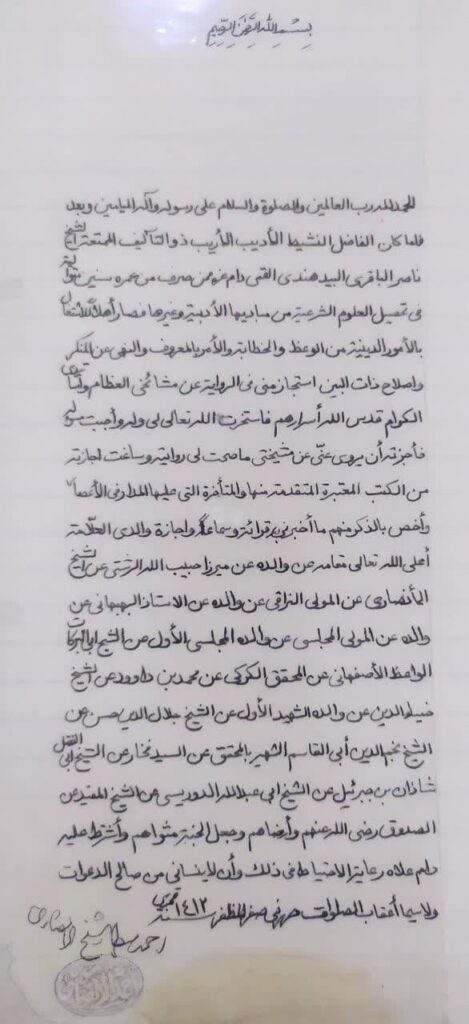 بسم الله الرحمن الرحيم
الحمد لله رب العالمين والصلوة والسلام على رسوله وآله الميامين وبعد
فلما كان الفاضل النشيط الأديب الأريب ذو التآليف الممتعة الشيخ
ناصر الباقرى البيدهندى القمى دام عزه ممن صرف من عمره سنين متوالية
فى تحصيل العلوم الشرعية من مباديها الأدبية وغيرها فصار أهلاً للاشتغال
بالأمور الدينية من الوعظ والخطابة والأمر بالمعروف والنهى عن المنكر
واصلاح ذات البين استجاز منى فى الرواية عن مشائخى العظام وأساتيذى
الكرام قدس الله أسرارهم فاستخرت الله تعالى لى وله وأجبت سؤله
فأجزته أن يروى عنّى عن مشيختى ما صحت لى روايته وساغت لى اجازته
من الكتب المعتبرة المتقدمة منها والمتأخرة التى عليها المدار فى الأعصار
وأخص بالذكر منهم ما أخبرنى به قرائة وسماعاً واجازة والدى العلّامة
أعلى الله تعالى مقامه عن والده عن ميرزا حبيب الله الرشتى عن الشيخ
الأنصارى عن المولى النراقى عن والده عن الاستاذ البهبهانى عن
والده عن المولى المجلسى عن والده المجلسى الأول عن الشيخ أبى البركات
الواعظ الأصفهانى عن المحقق الكركى عن محمد بن داوود عن الشيخ
ضياء الدين عن والده الشهيد الأول عن الشيخ جلال الدين حسن عن
الشيخ نجم الدين أبى القاسم الشهير بالمحقق عن السيد فخار عن الشيخ أبى الفضل
شاذان بن جبرئيل عن الشيخ ابى عبدالله الدوريستى عن الشيخ المفيد عن
الصدوق رضى الله عنهم وأرضاهم وجعل الجنة مثواهم وأشترط عليه
دام علاه رعاية الاحتياط فى ذلك وأن لا ينسانى من صالح الدعوات
ولا سيما أعقاب الصلوات حرر فى صفر المظفر سنة ١٤١٣ قمرى
احمد سبط الشيخ الانصارى